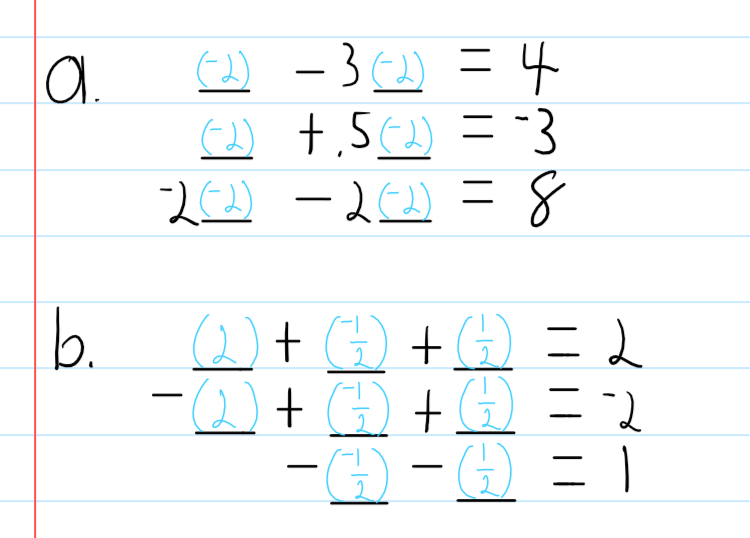 a. (-2) - 3(-2) = 4
(-2) + .5(-2) = -3
-2(-2) - 2(-2) = 8
b. (2) + (-1/2) + (1/2) = 2
-(2) + (-1/2) + (1/2) = -2
-(-1/2) - (1/2) = 1